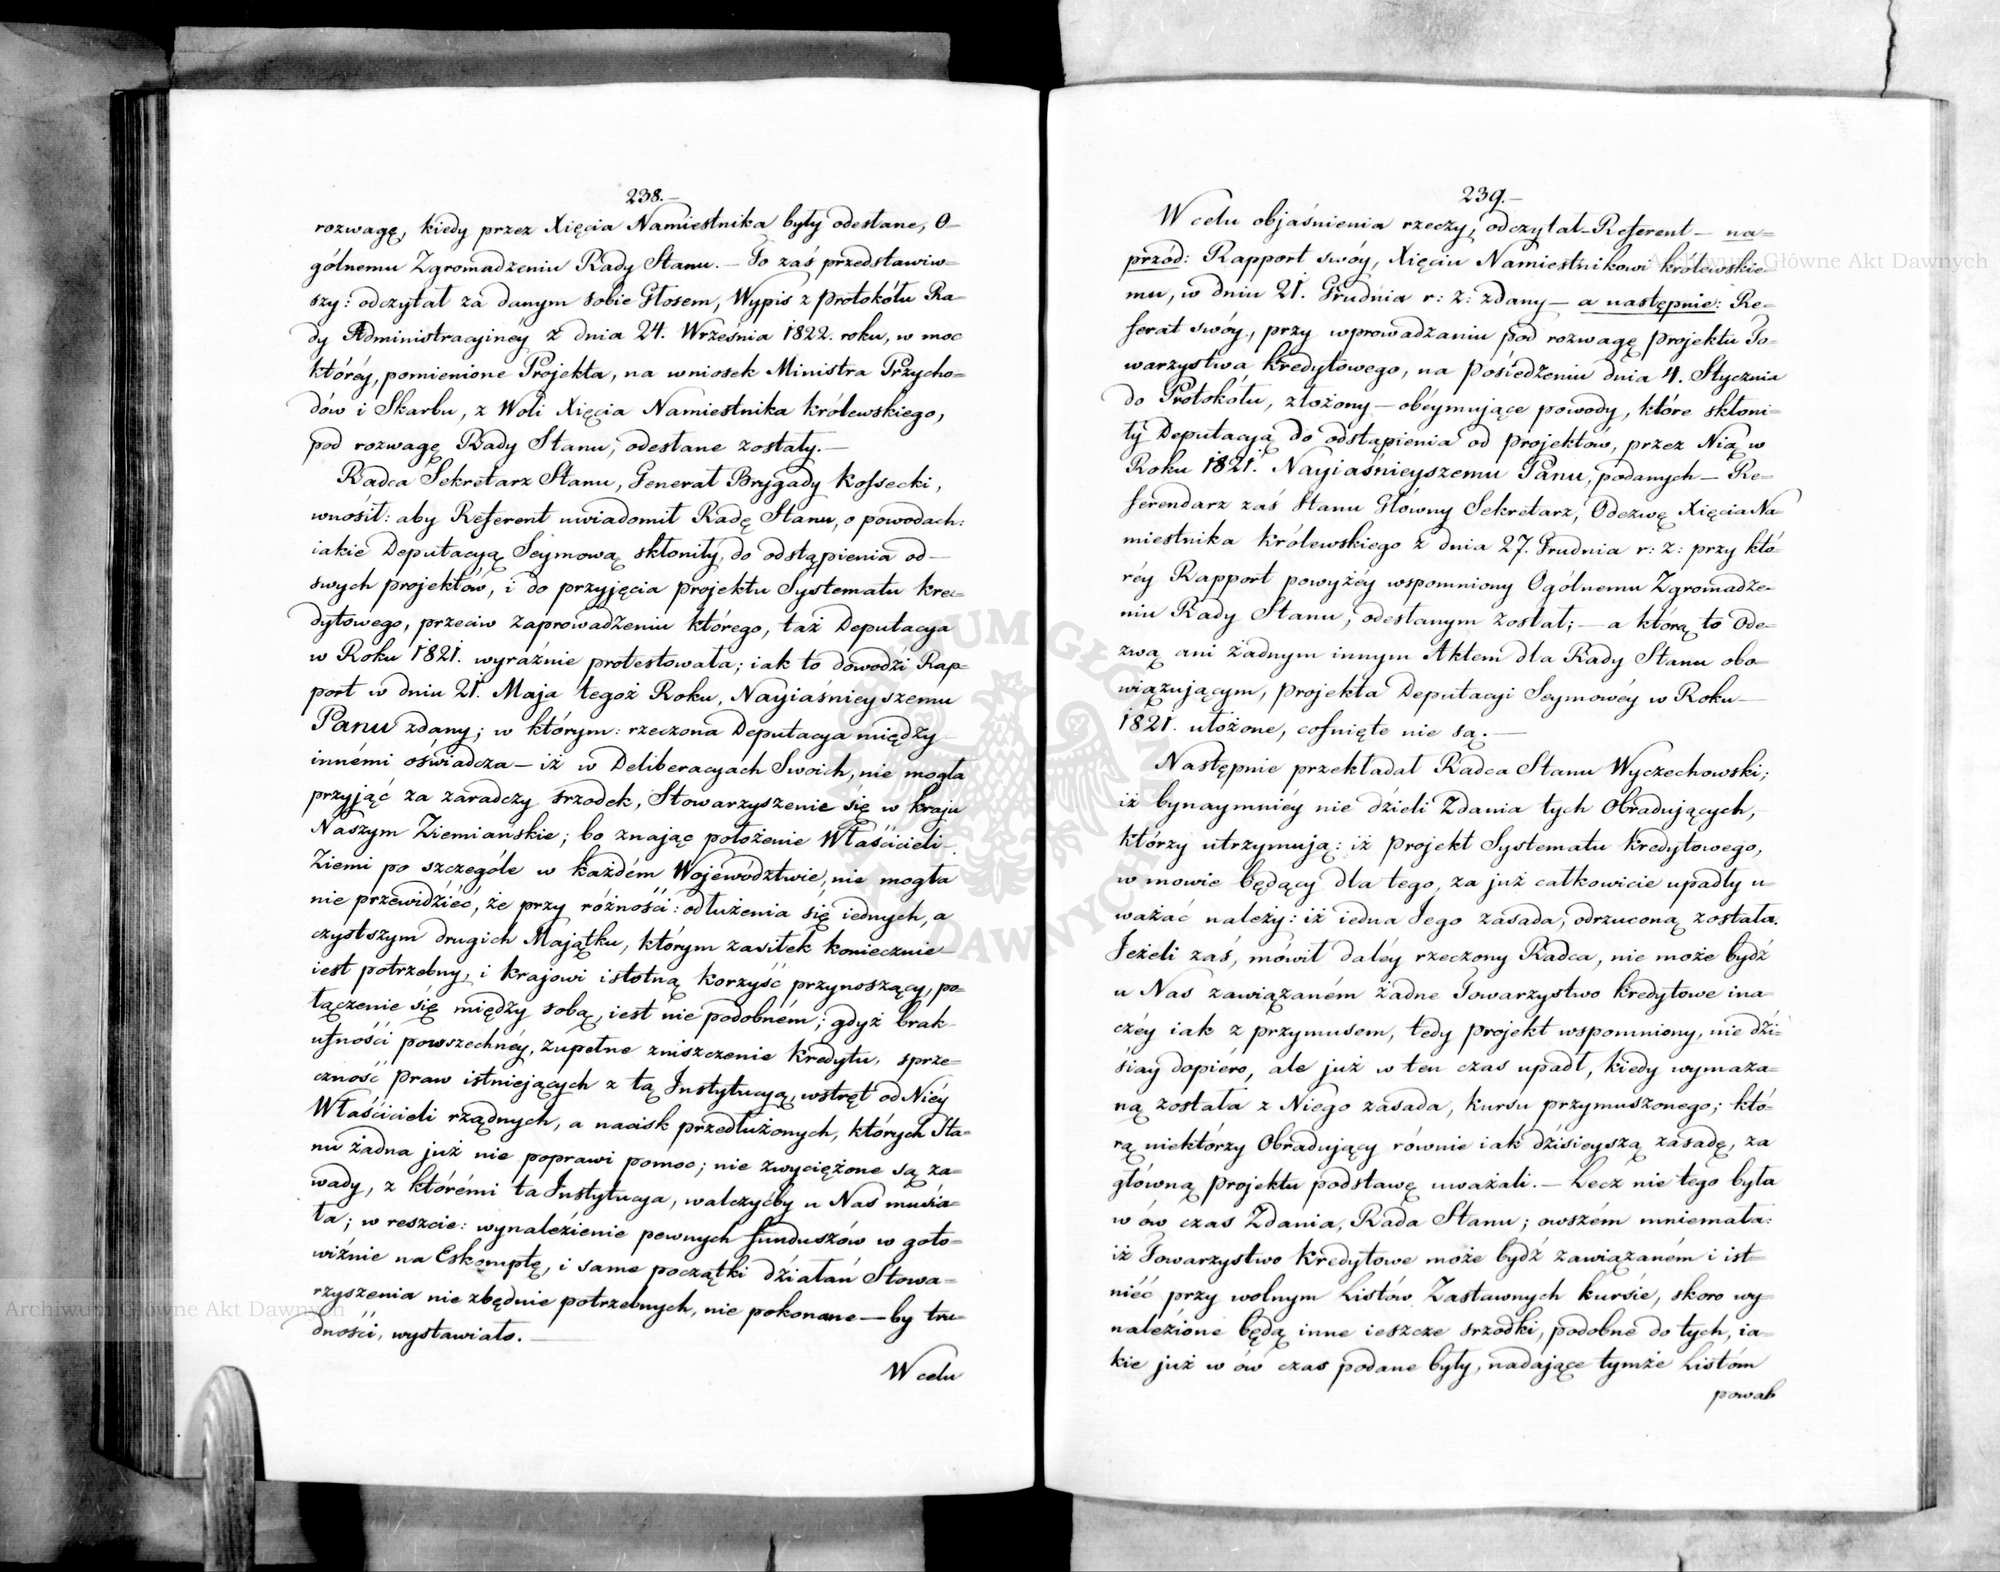 238.—
rozwagę, kiedy przez Xięcia Namiestnika były odesłane, O=
gólnemu Zgromadzeniu Rady Stanu. — To zaś przedstawiw=
szy: odczytał za danym sobie Głosem, Wypis z protokółu Ra=
dy Administracyiney z dnia 24. Września 1822. roku, w moc
któréy, pomienione Projekta, na wniosek Ministra Przycho=
dów i Skarbu, z Woli Xięcia Namiestnika królewskiego,
pod rozwagę Rady Stanu, odesłane zostały. —
Radca Sekretarz Stanu, Generał Brygady Kossecki,
wnósił: aby Referent uwiadomił Radę Stanu, o powodach:
iakie Deputacyą Seymową skłoniły, do odstąpienia od —
swych projektów, i do przyjęcia projektu Systematu kre=
dytowego, przeciw zaprowadzeniu którego, taż Deputacya
w Roku 1821. wyraźnie protestowała; iak to dowodzi Rap=
port w dniu 21. Maja tegoż Roku, Nayiaśnieyszemu
Panu zdany; w którym: rzeczona Deputacya między
innémi oświadcza — iż w Deliberacyach Swoich, nie mogła
przyjąć za zaradczy śrzodek, Stowarzyszenie się w kraju
Naszym Ziemiańskie; bo znając położenie Właścicieli
Ziemi po szczególe w każdém Województwie, nie mogła
nie przewidzieć, że przy różności: odłużenia się iednych, a
czystszym drugich Majątku, którym zasiłek koniecznie —
iest potrzebny, i krajowi istotną korzyść przynoszący, po=
łączenie się między sobą, iest nie podobném; gdyż brak
ufności powszechnéy, zupełne zniszczenie kredytu, sprze=
czność praw istniejących z tą Instytucyą, wstręt od Niéy
Właścicieli rządnych, a nacisk przedłużonych, których Sta=
nu żadna już nie poprawi pomoc; nie zwyciężone są za=
wady, z którémi ta Instytucya, walczyćby u Nas musia=
ła; w reszcie: wynalezienie pewnych funduszów w goto=
wiźnie na Eskomptę, i same początki działań Stowa=
rzyszenia niezbędnie potrzebnych, nie pokonane — by tru=
dności, wystawiało. —
W celu
239.—
W celu objaśnienia rzeczy, odczytał Referent — na=
przód: Rapport swóy, Xięciu Namiestnikowi królewskie=
mu, w dniu 21. Grudnia r: z: zdany — a następnie: Re=
ferat swóy, przy wprowadzaniu pod rozwagę projektu To=
warzystwa kredytowego, na posiedzeniu dnia 4. Stycznia
do Protokółu, złożony — obéymujące powody, które skłoni=
ły Deputacyą do odstąpienia od projektów, przez Nią w
Roku 1821. Nayiaśnieyszemu Panu, podanych — Re=
ferendarz zaś Stanu Główny Sekretarz, Odezwę Xięcia Na=
miestnika królewskiego z dnia 27. Grudnia r: z: przy któ=
réy Rapport powyżéy wspomniony Ogólnemu Zgromadze=
niu Rady Stanu, odesłanym został; — a którą to Ode=
zwą ani żadnym innym Aktem dla Rady Stanu obo=
wiązującym, projekta Deputacyi Seymowéy w Roku —
1821. ułożone, cofnięte nie są. —
Następnie przekładał Radca Stanu Wyczechowski;
iż bynaymniéy nie dzieli Zdania tych Obradujących,
którzy utrzymują: iż projekt Systematu kredytowego,
w mowie będący dla tego, za już całkowicie upadły u=
ważać należy: iż iedna Jego zasada, odrzuconą została.
Jeżeli zaś, mówił daléy rzeczony Radca, nie może bydź
u Nas zawiązaném żadne Towarzystwo kredytowe ina=
czéy iak z przymusem, tedy projekt wspomniony, nie dzi=
siay dopiero, ale już w ten czas upadł, kiedy wymaza=
ną została z Niego zasada, kursu przymuszonego; któ=
rą niektórzy Obradujący równie iak dzisieyszą zasadę, za
główną projektu podstawę uważali. — Lecz nie tego była
w ów czas Zdania, Rada Stanu; owszém mniemała:
iż Towarzystwo kredytowe może bydź zawiązaném i ist=
nieć przy wolnym Listów Zastawnych kursie, skoro wy=
nalezione będą inne ieszcze śrzodki, podobne do tych, ia=
kie już w ów czas podane były, nadające tymże Listóm
powab
Archiwum Główne Akt Dawnych
Archiwum Główne Akt Dawnych
ARCHIWUM GŁÓWNE AKT DAWNYCH